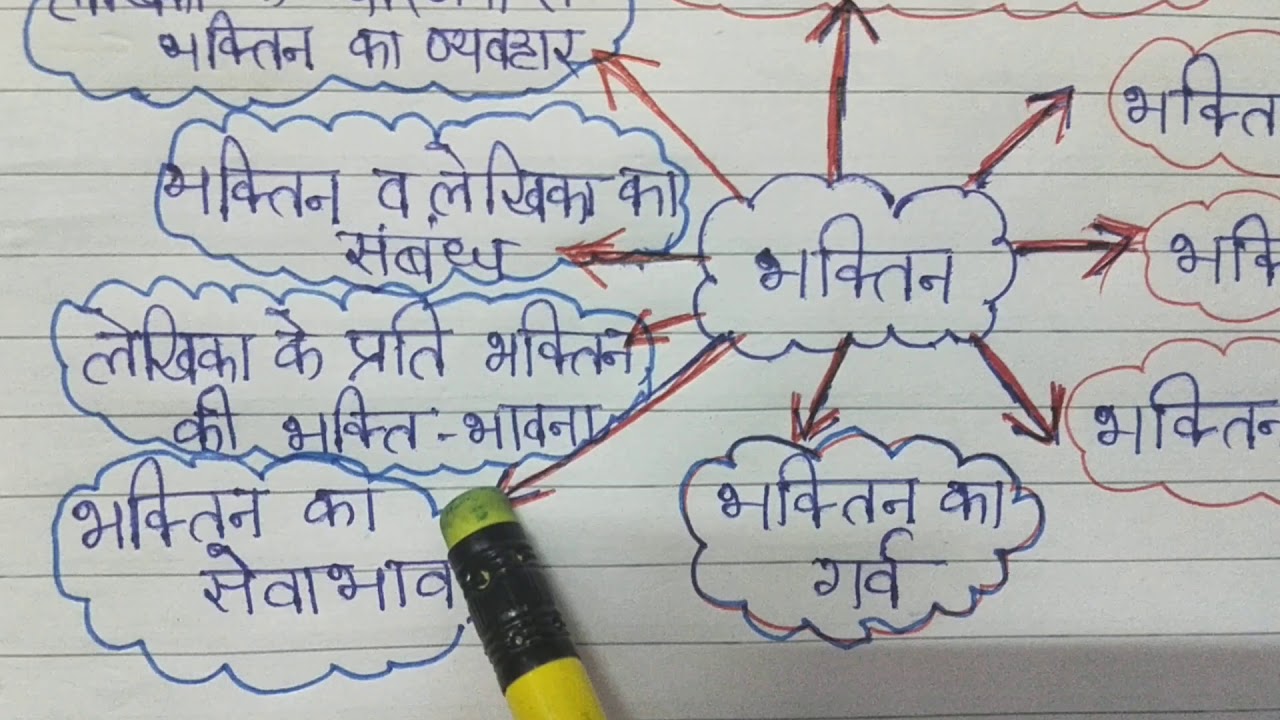 भक्तिन का व्यवहार
भक्तिन व लेखिका का
संबंध
लेखिका के प्रति भक्तिन
की भक्ति-भावना
भक्तिन का
सेवाभाव
भक्तिन
भक्तिन का
गर्व
भक्ति
भक्ति
भक्तिन